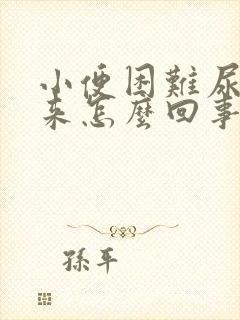 小便困難尿
来怎麼回事
孫平